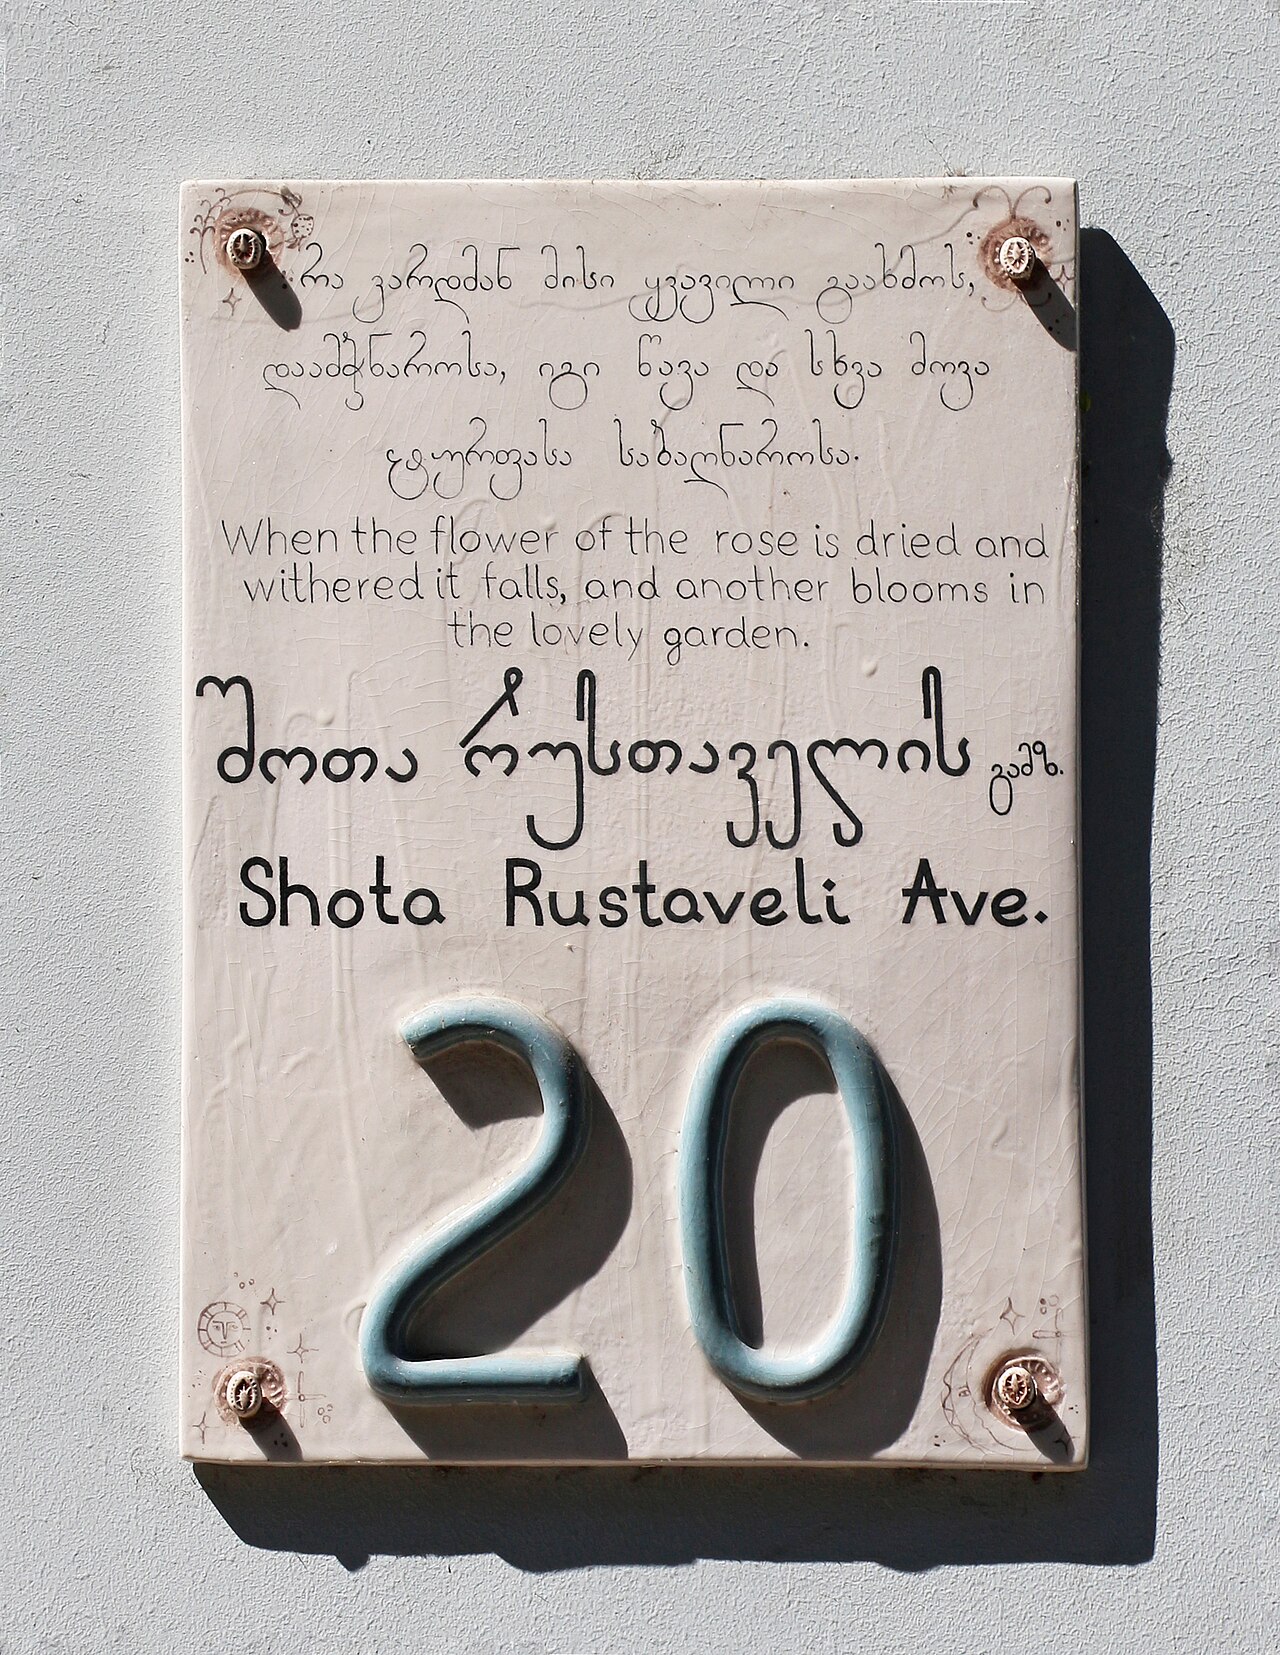 რა ვარდმან მისი ყვავილი გაახმოს,
დაამჭნაროსა, იგი წავა და სხვა მოვა
ტურფასა საბაღნაროსა.
When the flower of the rose is dried and
withered it falls, and another blooms in
the lovely garden.
შოთა რუსთაველის გამზ.
Shota Rustaveli Ave.
20